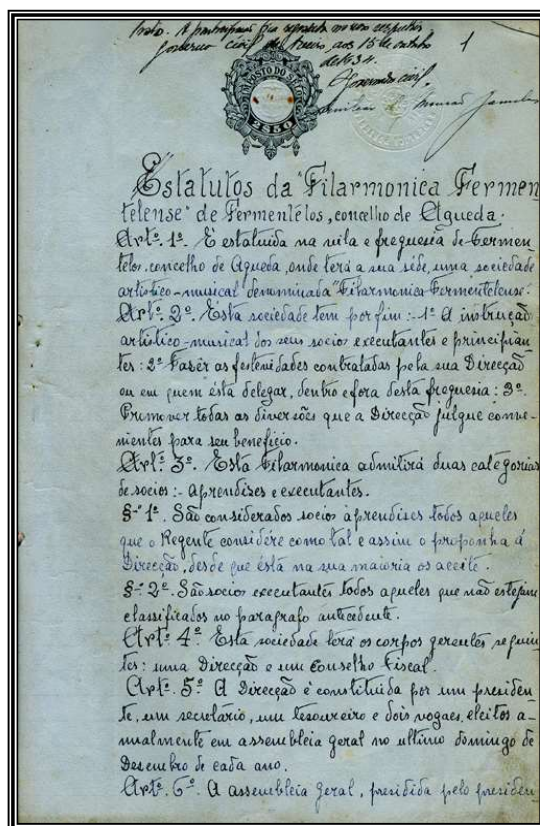 Visto. A participação foi
governo civil de Aveiro, aos 15 de outubro
1
de 1934.
O governador civil,
IMPOSTO DO SELO
2$50
Estatutos da "Filarmonica Fermen
telense" de Fermentelos, concelho de Agueda.
Artº. 1º. É estatuida na vila e freguesia de Fermen-
telos, concelho de Agueda, onde terá a sua séde, uma sociedade
artistico-musical denominada "Filarmonica Fermentelense".
Artº. 2º. Esta sociedade tem por fim:- 1º A instrução
artistico-musical dos seus socios executantes e principian-
tes: 2º Fasêr as festividades contratadas pela sua Direcção
ou em quem ésta delegar, dentro e fora desta freguesia: 3º.
Promover todas as diversões que a Direcção julgue conve-
nientes para seu beneficio.
Artº. 3º. Esta Filarmonica admitirá duas categorias
de socios:- aprendises e executantes.
§-1º. São considerados socios aprendises todos aqueles
que o Regente considére como tal e assim o proponha á
Direcção, desde que ésta na sua maioria os aceite.
§-2º. São socios executantes todos aqueles que não estejam
classificados no paragrafo antecedente.
Artº. 4º. Esta sociedade terá os corpos gerentes seguin-
tes: uma Direcção e um Conselho Fiscal.
Artº. 5º A Direcção é constituida por um presiden-
te, um secretário, um tesoureiro e dois vogaes, eleitos a-
nualmente em assembleia geral no ultimo domingo de
Desembro de cada ano.
Artº. 6º. A assembleia geral, presidida pelo presiden-